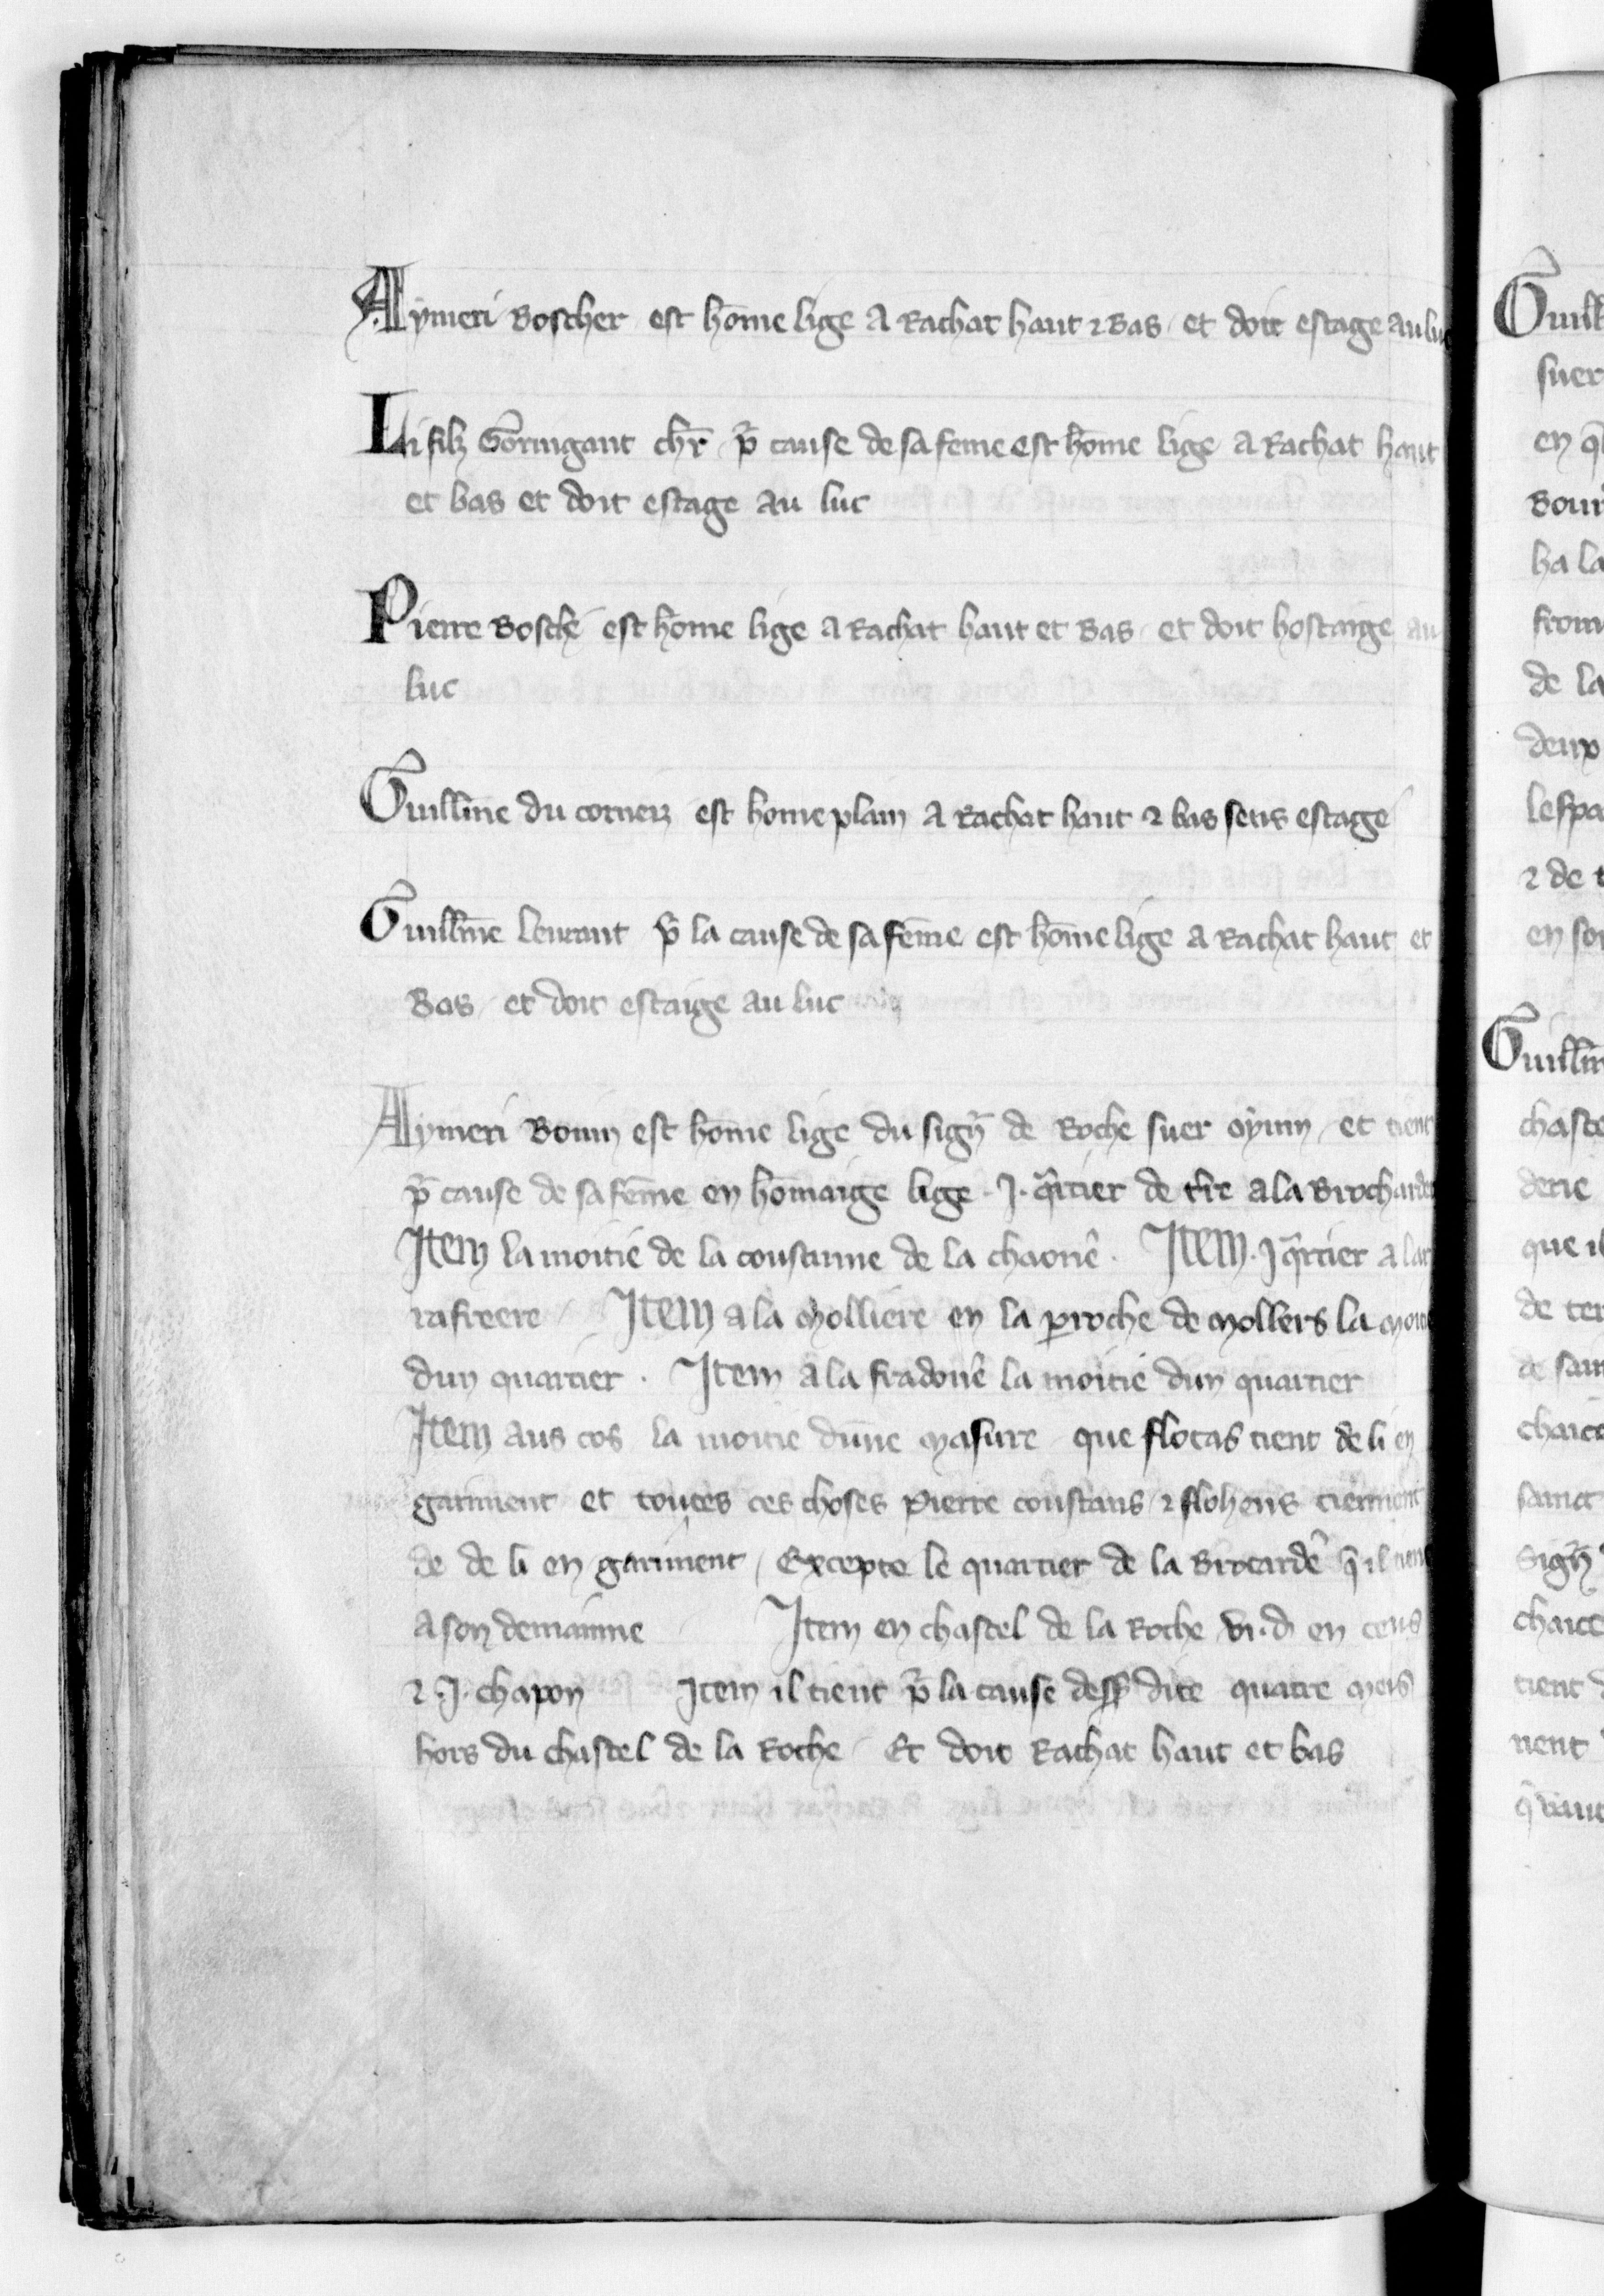 Aymeri Boscher est hōme lige a Rachat haut ⁊ Bas et doit estage au luc
Li filz Goringant chr̄ p̄ cause de sa feme est hōme lige a Rachat haut
et bas et doit estage au luc
Pierre Bosche est hōme lige a Rachat haut et Bas et doit hostaige au
luc
Guillme du corneiz est home plain a Rachat haut ⁊ bas sens estage
Guillme leurant p̄ la cause de sa fēme est hōme lige a Rachat haut et
Bas et doit estaige au luc
Aymeri Bonin est hōme lige du sign̄ de Roche suer oynm et tient
p̄ cause de sa fēme en hōmaige lige .J. q̄rtier de tr̄e a la Brocharde
Item la moitie de la coustume de la chaonē . Item .J q̄rtier a la
rafreere Item a la Molliere en la proche de Mollers la
dun quartier . Item a la fradonē la moitie dun quartier
Item aus cos la moitie dūne Masure que flocas tient de li en
gariment et toutes ces choses Pierre constans ⁊ flohens tiennent
de de li en gariment Excepte le quartier de la Brocardē q̄ il tient
a son demainne Item en chastel de la Roche vi. d en cens
⁊ .J. chapon Item il tient p̄ la cause dess̄ dite quatre meis
hors du chastel de la Roche Et doit Rachat haut et bas
Guill
suer
en q̄
Bour
ha la
from
de la
deux
lespa
⁊ de t
en so
Guillm
chaste
derie
que il
de ter
de sain
chaice
sainct
Sign̄
chaice
tient d
nent
q̄ vaut